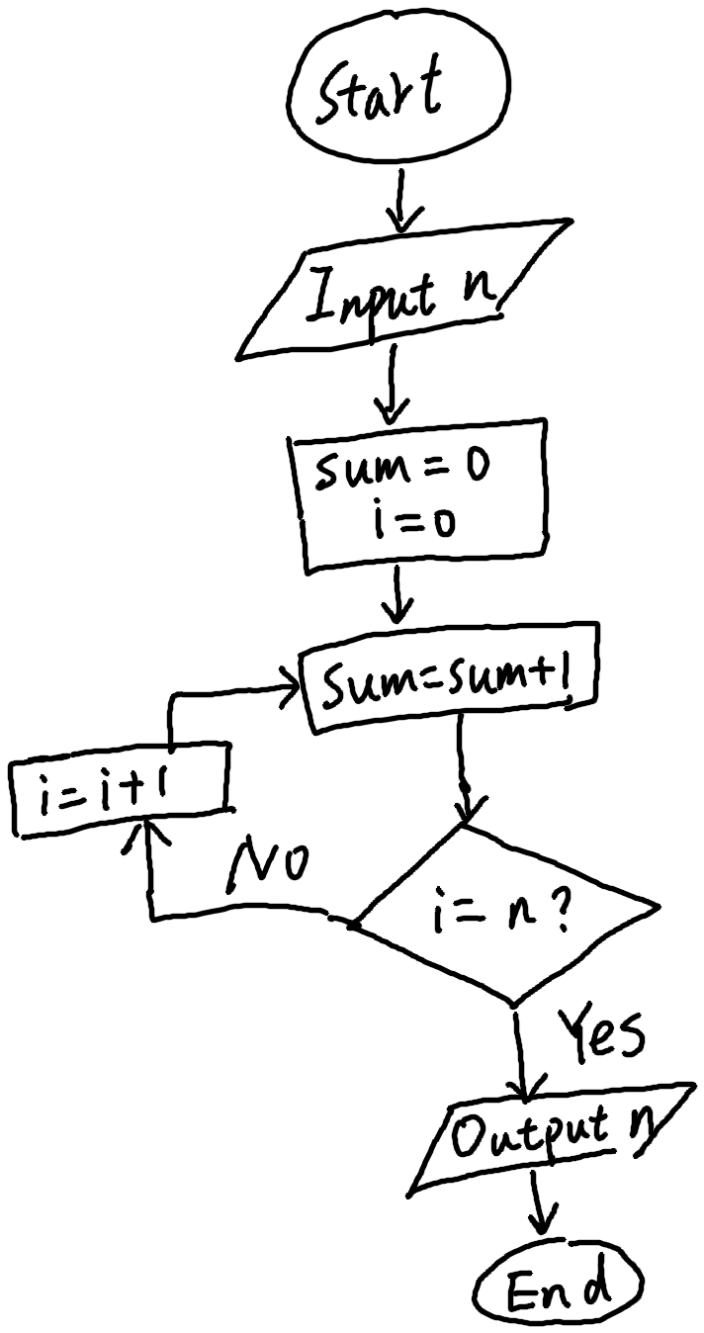 Start
Input n
sum = 0
i = 0
Sum=sum+1
i = i + 1
No
i = n ?
Yes
Output n
End